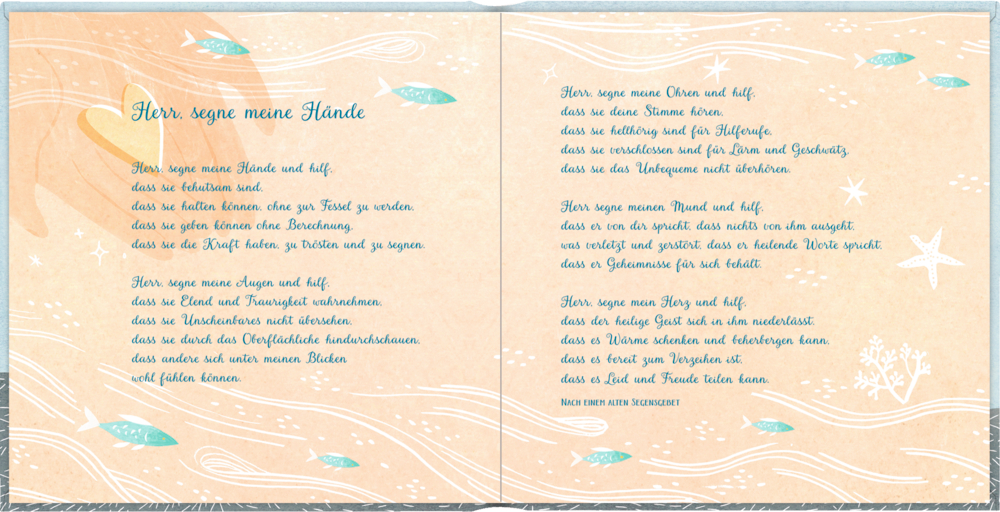 Herr, segne meine Hände
Herr, segne meine Hände und hilf,
dass sie behutsam sind,
dass sie halten können, ohne zur Fessel zu werden,
dass sie geben können ohne Berechnung,
dass sie die Kraft haben, zu trösten und zu segnen.
Herr, segne meine Augen und hilf,
dass sie Elend und Traurigkeit wahrnehmen,
dass sie Unscheinbares nicht übersehen,
dass sie durch das Oberflächliche hindurchschauen,
dass andere sich unter meinen Blicken
wohl fühlen können.
Herr, segne meine Ohren und hilf,
dass sie deine Stimme hören,
dass sie hellhörig sind für Hilferufe,
dass sie verschlossen sind für Lärm und Geschwätz,
dass sie das Unbequeme nicht überhören.
Herr segne meinen Mund und hilf,
dass er von dir spricht, dass nichts von ihm ausgeht,
was verletzt und zerstört, dass er heilende Worte spricht,
dass er Geheimnisse für sich behält.
Herr, segne mein Herz und hilf,
dass der heilige Geist sich in ihm niederlässt,
dass es Wärme schenken und beherbergen kann,
dass es bereit zum Verzeihen ist,
dass es Leid und Freude teilen kann.
Nach einem alten Segensgebet